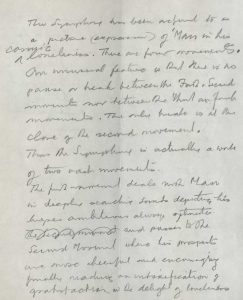 This Symphony has been referred to as
a picture (expression) of Man in his
cosmic loneliness. There are four movements.
One unusual feature is that there is no
pause or break between the First & Second
movements nor between the Third and fourth
movements. The only break is at the
close of the second movement.
Thus the Symphony is actually a work
of two vast movements.
The first movement deals with Man
in deeply searching sounds depicting his
hopes ambitions always
and passes to the
Second Movement where his prospects
are more cheerful and encouraging
finally reaching an intensification of
gratification in the delight of loneliness